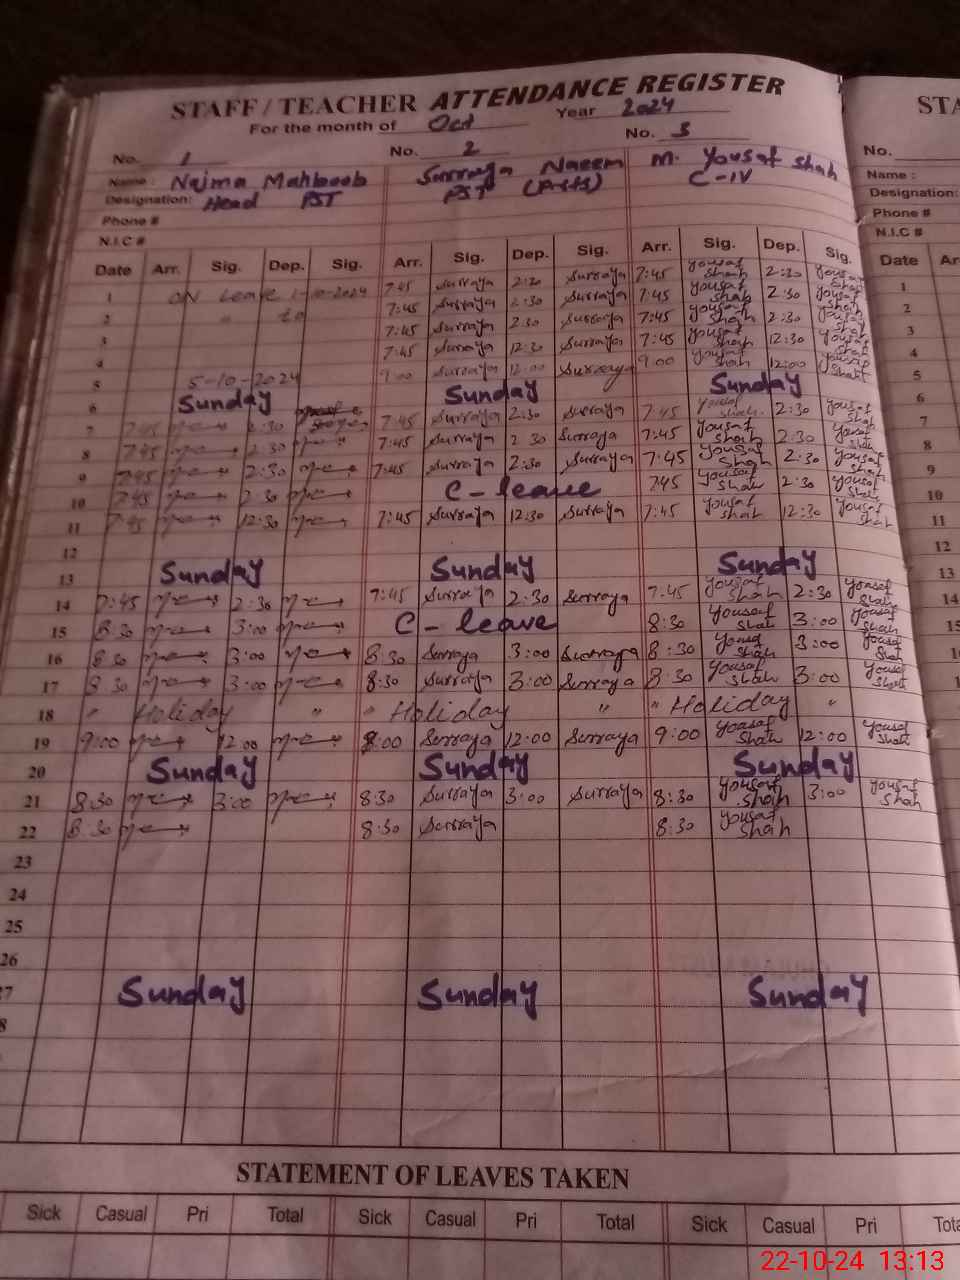 STAFF / TEACHER ATTENDANCE REGISTER STA
For the month of Oct Year 2024
No. 1 No. 2 No. 3 No.
Name : Najma Mahboob Surraya Naeem M. Yousaf Shah Name :
Designation: Head PST PST (Arts) C-IV Designation:
Phone # Phone #
N.I.C # N.I.C #
Date Arr. Sig. Dep. Sig. Arr. Sig. Dep. Sig. Arr. Sig. Dep. Sig. Date Ar
1 ON Leave 1-10-2024 7:45 Surraya 2:30 Surraya 7:45 Yousaf Shah 2:30 Yousaf Shah 1
2 " to 7:45 Surraya 2:30 Surraya 7:45 Yousaf Shah 2:30 Yousaf Shah 2
3 7:45 Surraya 2:30 Surraya 7:45 Yousaf Shah 2:30 Yousaf Shah 3
4 7:45 Surraya 12:30 Surraya 7:45 Yousaf Shah 12:30 Yousaf Shah 4
5 5-10-2024 9:00 Surraya 12:00 Surraya 9:00 Yousaf Shah 12:00 Yousaf Shah 5
6 Sunday Sunday Sunday 6
7 7:45 2:30 7:45 Surraya 2:30 Surraya 7:45 Yousaf Shah 2:30 Yousaf Shah 7
8 7:45 2:30 7:45 Surraya 2:30 Surraya 7:45 Yousaf Shah 2:30 Yousaf Shah 8
9 7:45 2:30 7:45 Surraya 2:30 Surraya 7:45 Yousaf Shah 2:30 Yousaf Shah 9
10 7:45 2:30 C-leave 7:45 Yousaf Shah 2:30 Yousaf Shah 10
11 7:45 12:30 7:45 Surraya 12:30 Surraya 7:45 Yousaf Shah 12:30 Yousaf Shah 11
12 12
13 Sunday Sunday Sunday 13
14 7:45 2:30 7:45 Surraya 2:30 Surraya 7:45 Yousaf Shah 2:30 Yousaf Shah 14
15 8:30 3:00 C-leave 8:30 Yousaf Shah 3:00 Yousaf Shah 15
16 8:30 3:00 8:30 Surraya 3:00 Surraya 8:30 Yousaf Shah 3:00 Yousaf Shah
17 8:30 3:00 8:30 Surraya 3:00 Surraya 8:30 Yousaf Shah 3:00 Yousaf Shah
18 " Holiday " " Holiday " " Holiday "
19 9:00 12:00 9:00 Surraya 12:00 Surraya 9:00 Yousaf Shah 12:00 Yousaf Shah
20 Sunday Sunday Sunday
21 8:30 3:00 8:30 Surraya 3:00 Surraya 8:30 Yousaf Shah 3:00 Yousaf Shah
22 8:30 8:30 Surraya 8:30 Yousaf Shah
23
24
25
26
7 Sunday Sunday Sunday
8
STATEMENT OF LEAVES TAKEN
Sick Casual Pri Total Sick Casual Pri Total Sick Casual Pri Tota
22-10-24 13:13